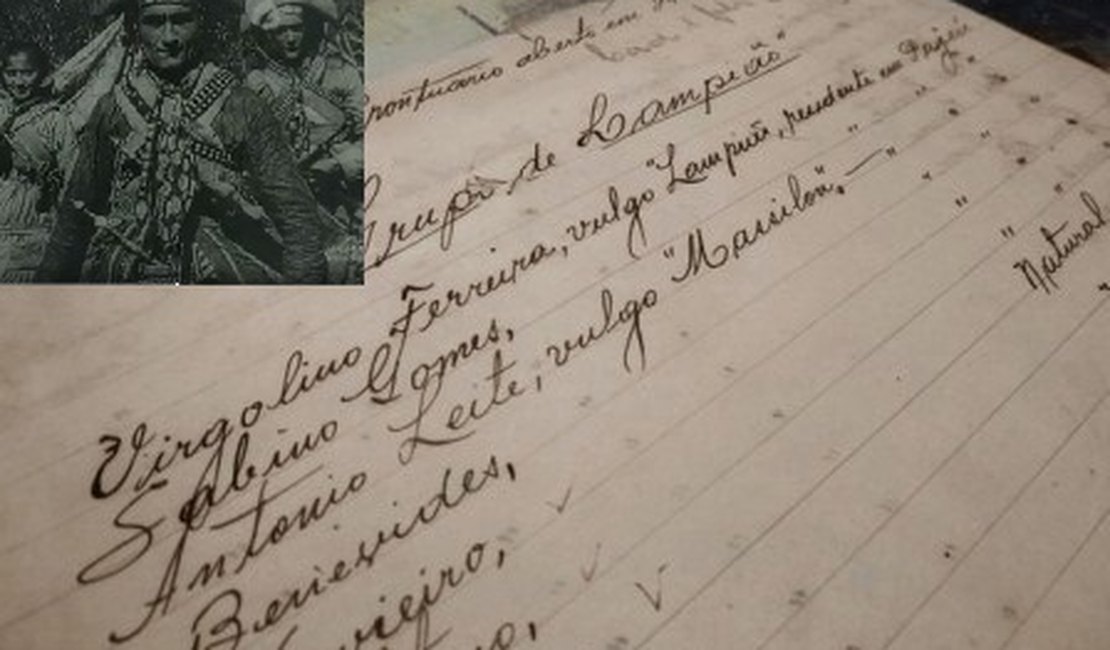 Prontuario aberto em
Grupo de Lampeão"
Virgolino Ferreira, vulgo "Lampeão, residente em Pajeú
Sabino Gomes, " " "
Antonio Leite, vulgo "Massilon". — " " "
Benevides, " Natural